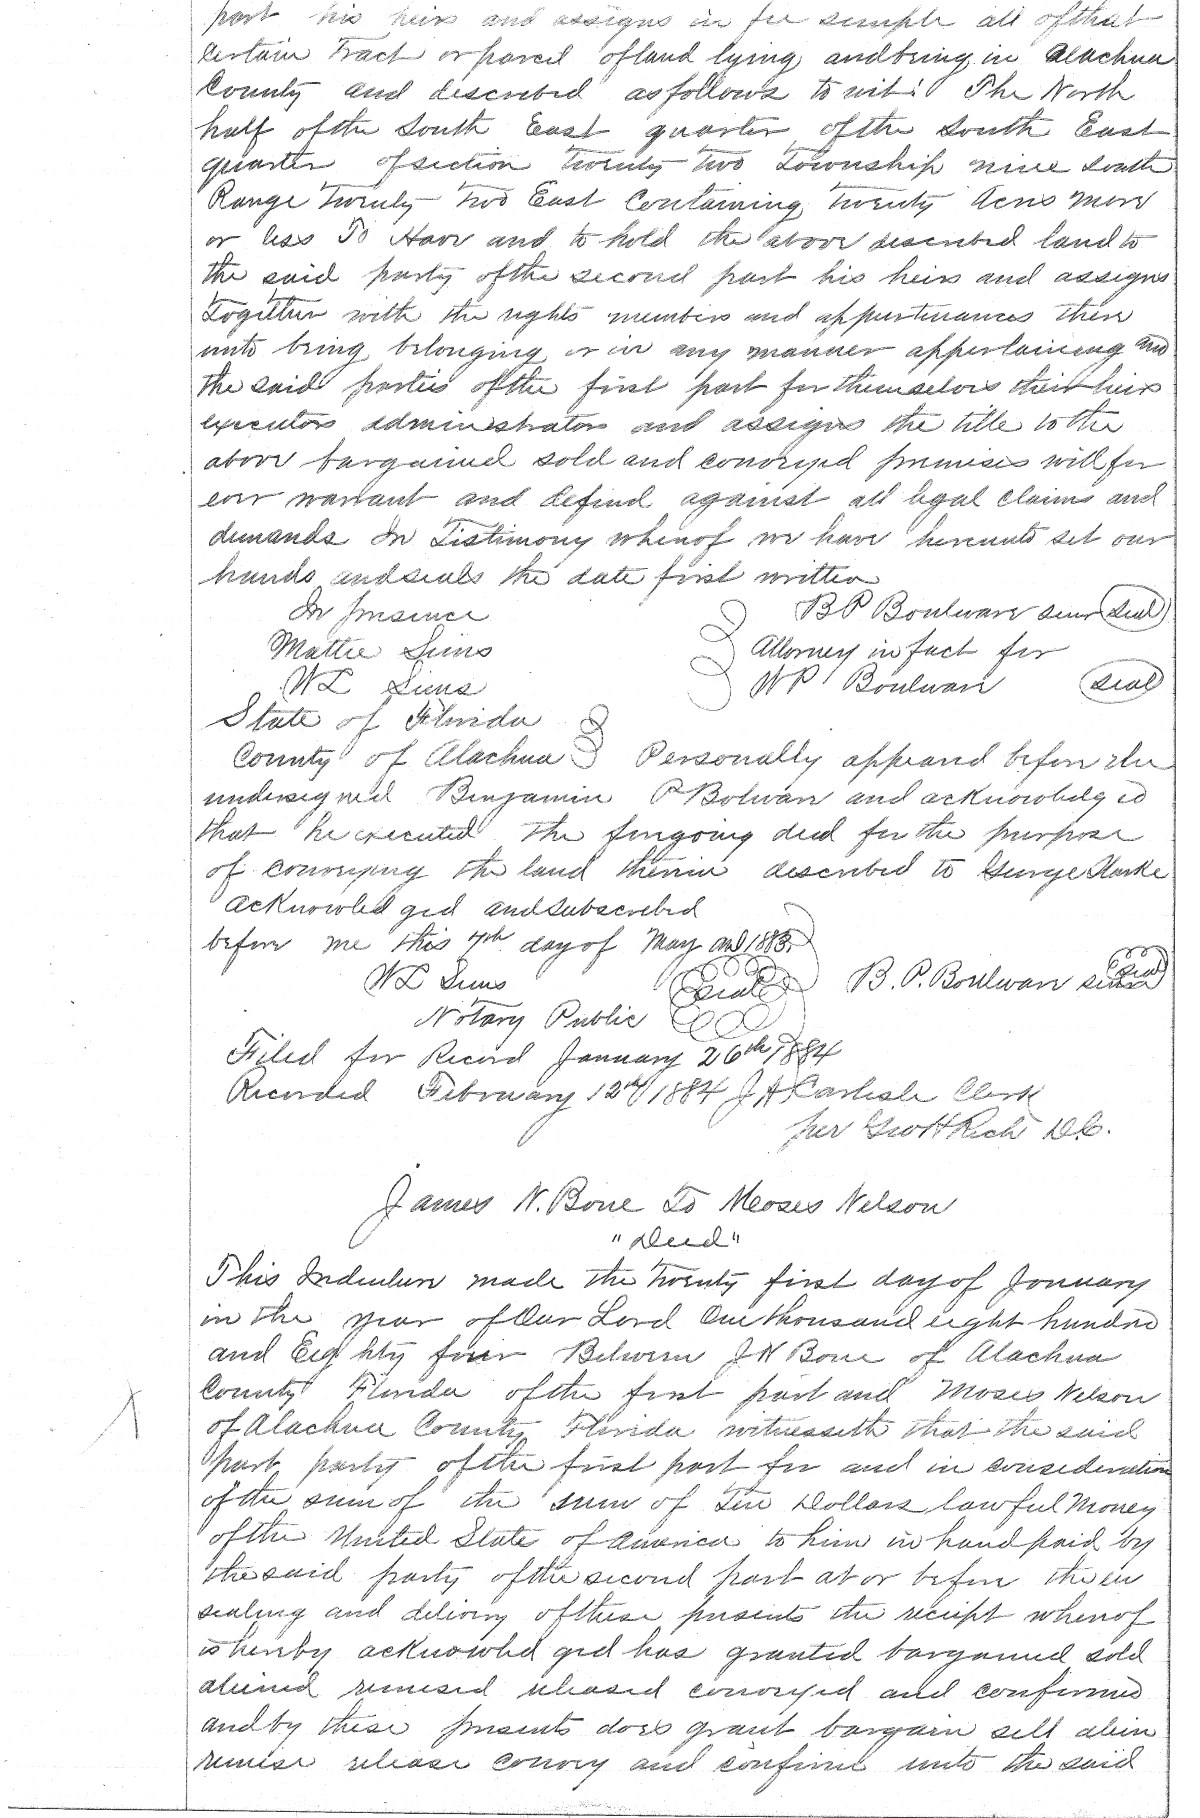 part his heirs and assigns in fee simple all of that
Certain Tract or parcel of land lying and being in Alachua
County and described as follows to wit: The North
half of the South East quarter of the South East
quarter of section Twenty two Township nine South
Range Twenty Two East Containing Twenty Acres More
or less To Have and to hold the above described land to
the said party of the second part his heirs and assigns
Together with the rights members and appurtenances there
unto being belonging or in any manner appertaining and
the said parties of the first part for themselves their heirs
executors administrators and assigns the title to the
above bargained sold and conveyed premises will for
ever warrant and defend against all legal claims and
demands In Testimony whereof we have hereunto set our
hands and seals the date first written
In presence BP Boulware senr Seal
Mattie Sims Attorney in fact for
WL Sims WP Boulware Seal
State of Florida
County of Alachua Personally appeared before the
undersigned Benjamin P Bolware and acknowledged
that he executed the foregoing deed for the purpose
of conveying the land therein described to George Clarke
acknowledged and subscribed
before me this 7th day of May AD 1883.
WL Sims Seal B. P. Boulware senr Seal
Notary Public
Filed for Record January 26th 1884
Recorded February 12th 1884 J A Carlisle Clerk
per Geo H Rich D.C.
James N. Bone To Moses Nelson
"Deed"
This Indenture made the Twenty first day of January
in the year of Our Lord One thousand eight hundred
and Eighty four Between J N Bone of Alachua
County Florida of the first part and Moses Nelson
of Alachua County Florida witnesseth that the said
part party of the first part for and in consideration
of the sum of the sum of Ten Dollars lawful Money
of the United State of America to him in hand paid by
the said party of the second part at or before the en
sealing and delivery of these presents the receipt whereof
is hereby acknowledged has granted bargained sold
aliened remised released conveyed and confirmed
and by these presents does grant bargain sell alien
remise release convey and confirm unto the said